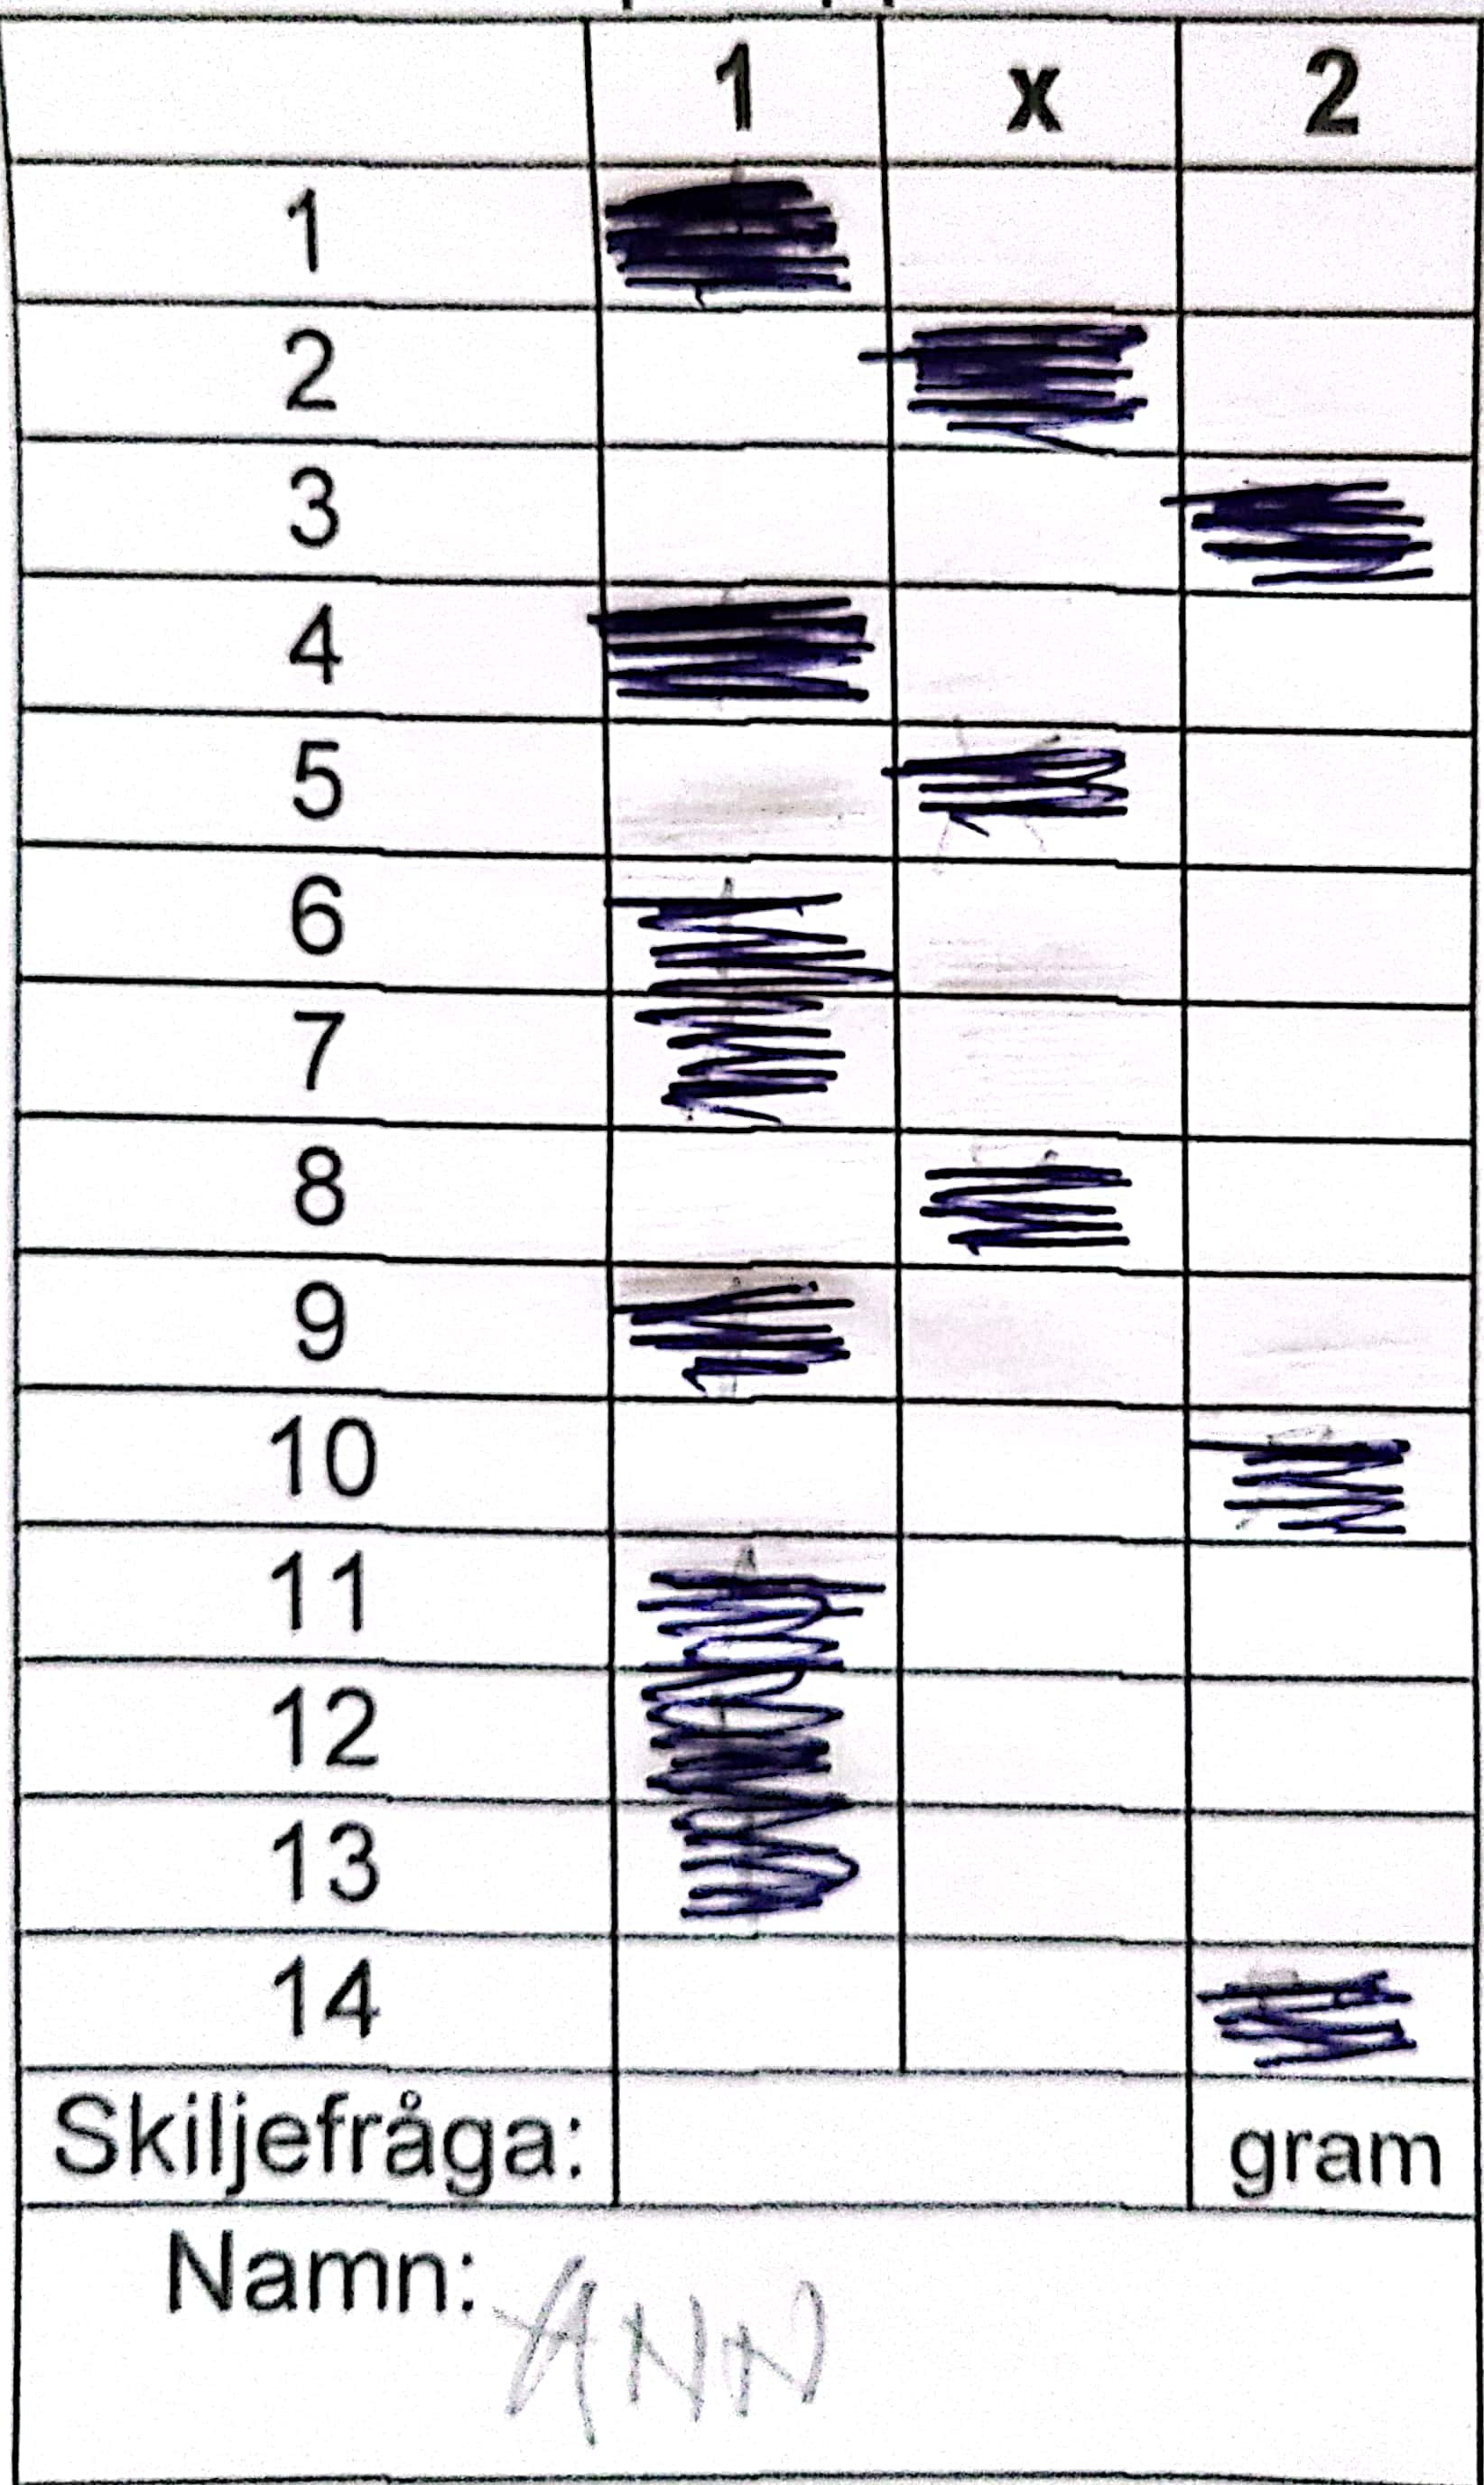 1 x 2
1
2
3
4
5
6
7
8
9
10
11
12
13
14
Skiljefråga: gram
Namn: ANN